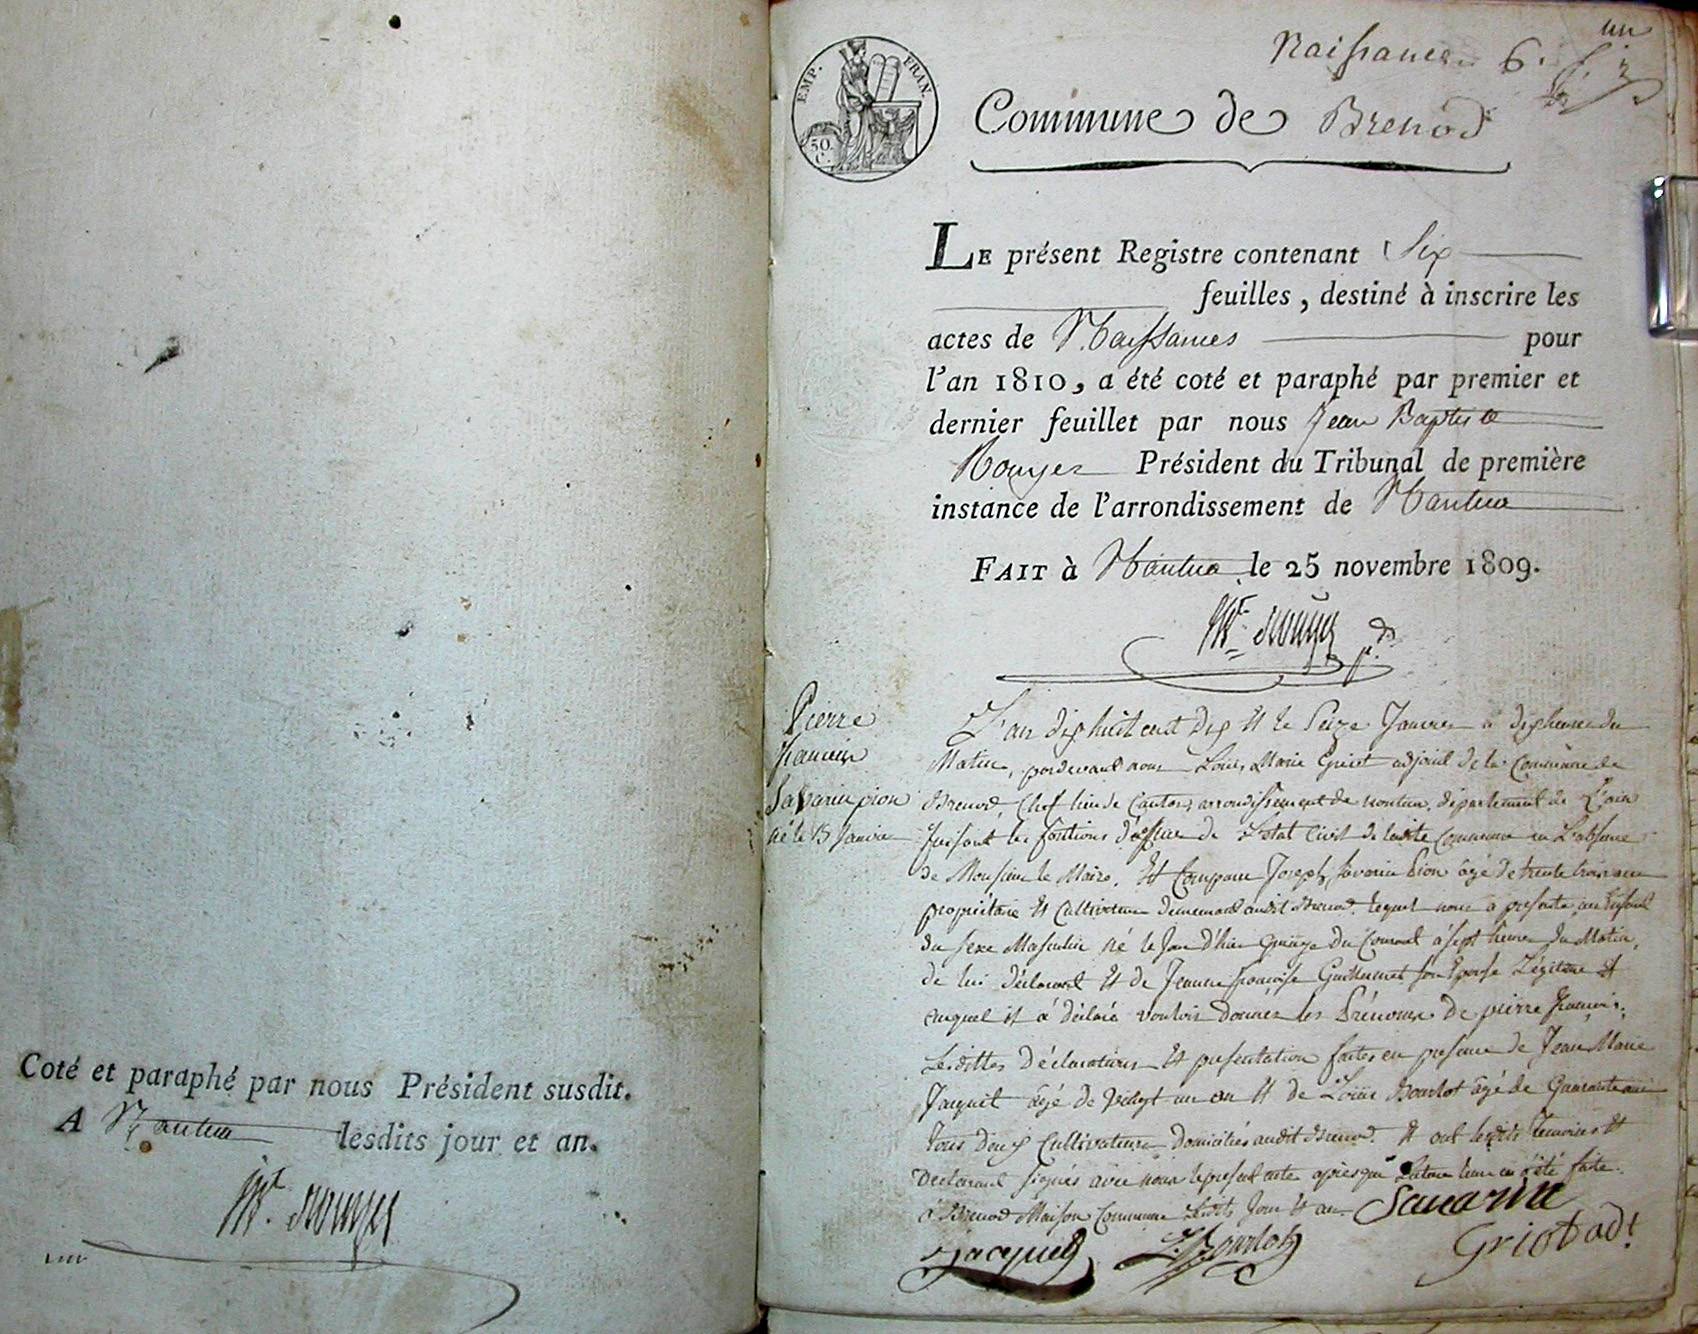 Coté et paraphé par nous Président susdit.
A Nantua lesdits jour et an.
un
Naissances 6.
EMP. FRAN.
50.
C.
Commune de Brenod
LE présent Registre contenant Six
feuilles, destiné à inscrire les
actes de Naissances pour
l'an 1810, a été coté et paraphé par premier et
dernier feuillet par nous Jean Baptiste
Rouyer Président du Tribunal de première
instance de l'arrondissement de Nantua
FAIT à Nantua le 25 novembre 1809.
Pierre
francois
Savarin pion
né le 15 Janvier
L'an dix huit cent dix Et le Seize Janvier à dix heures du
Matin, pardevant nous Louis Marie Griot adjoint de la Commune de
Brenod, Chef lieu de Canton, arrondissement de nantua, département de L'ain
faisant les fontions d'officier de L'Etat Civil de ladite Commune en L'absence
de Monsieur le Maire, Et Comparu Joseph Savarin Pion âgé de trente trois ans
propriétaire Et Cultivateur demeurant audit Brenod. lequel nous à présenté un Enfant
du sexe Masculin né le Jour d'hier quinze du Courant à sept heures du Matin,
de lui déclarant Et de Jeanne françoise Guillermet son Epouse Légitime Et
auquel il à déclaré vouloir donner les Prénoms de pierre francois.
Lesdittes Déclarations Et présentation faites en présence de Jean Marie
Jacquet âgé de vingt un an Et de Louis Bourlot âgé de Quarante ans
Tous deux Cultivateurs Domiciliés audit Brenod. Et ont lesdits Temoins Et
Déclarant signés avec nous le présent acte après que Lecture leur en à été faite.
à Brenod Maison Commune Lesdits Jour Et an. Savarin
Jacquet L. Bourlot Griot adt